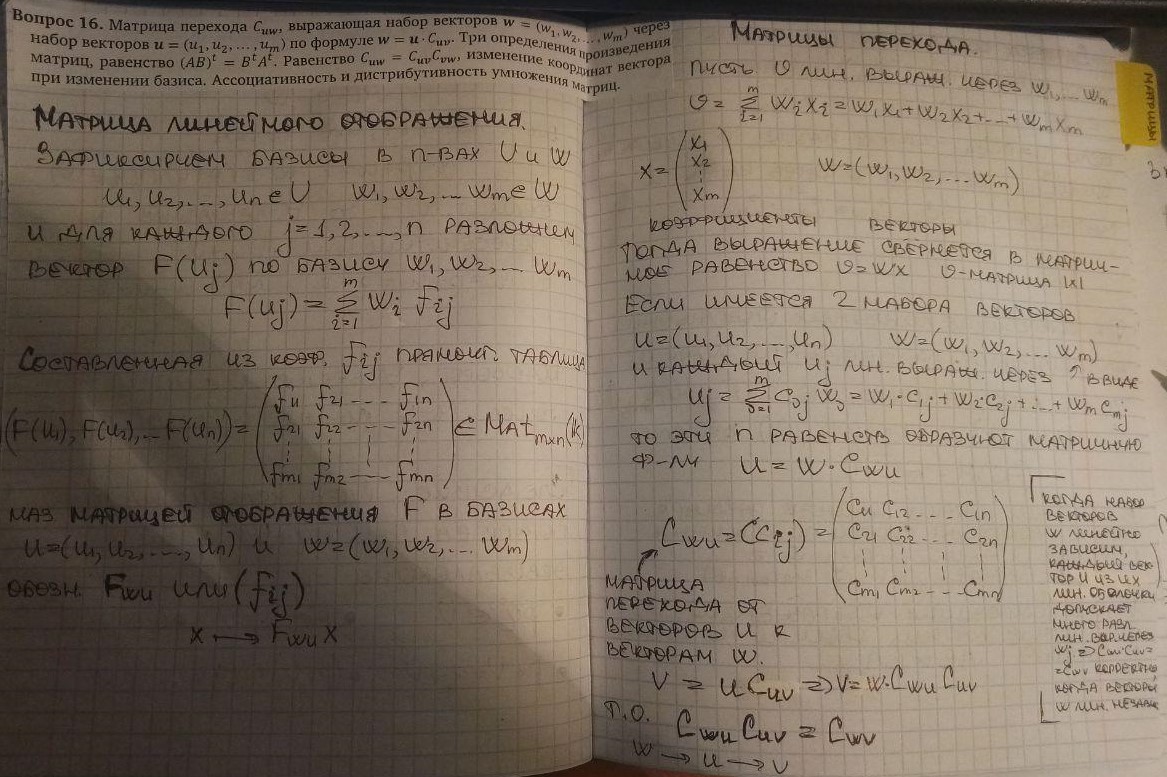 Вопрос 16. Матрица перехода C_uw, выражающая набор векторов w = (w₁, w₂, ..., wₘ) через
набор векторов u = (u₁, u₂, ..., uₘ) по формуле w = u · C_uw. Три определения произведения
матриц, равенство (AB)ᵗ = BᵗAᵗ. Равенство C_uw = C_uv C_vw, изменение координат вектора
при изменении базиса. Ассоциативность и дистрибутивность умножения матриц.
МАТРИЦА ЛИНЕЙНОГО ОТОБРАЖЕНИЯ.
ЗАФИКСИРУЕМ БАЗИСЫ В П-ВАХ U и W
u₁, u₂, ..., uₙ ∈ U w₁, w₂, ... wₘ ∈ W
И ДЛЯ КАЖДОГО j = 1, 2, ..., n РАЗЛОЖИМ
ВЕКТОР F(uⱼ) ПО БАЗИСУ w₁, w₂, ... wₘ
F(uⱼ) = Σ_{i=1}^{m} wᵢ fᵢⱼ
СОСТАВЛЕННАЯ ИЗ КОЭФ. fᵢⱼ ПРЯМОУГ. ТАБЛИЦА
(F(u₁), F(u₂), ... F(uₙ)) = ( f₁₁ f₂₁ ---- f₁ₙ
f₂₁ f₂₂ ---- f₂ₙ
fₘ₁ fₘ₂ ---- fₘₙ ) ∈ Matₘₓₙ(k)
НАЗ МАТРИЦЕЙ ОТОБРАЖЕНИЯ F В БАЗИСАХ
u = (u₁, u₂, ..., uₙ) и w = (w₁, w₂, ... wₘ)
ОБОЗН. F_wu ИЛИ (fᵢⱼ)
x ⟼ F_wu x
МАТРИЦЫ ПЕРЕХОДА.
ПУСТЬ v ЛИН. ВЫРАЖ. ЧЕРЕЗ w₁, ... wₘ
v = Σ_{i=1}^{m} wᵢxᵢ = w₁x₁ + w₂x₂ + ... + wₘxₘ
x = ( x₁
x₂
⋮
xₘ ) w = (w₁, w₂, ... wₘ)
КОЭФФИЦИЕНТЫ ВЕКТОРЫ
ТОГДА ВЫРАЖЕНИЕ СВЕРНЕТСЯ В МАТРИЧ-
НОЕ РАВЕНСТВО v = wx v-МАТРИЦА 1x1
ЕСЛИ ИМЕЕТСЯ 2 НАБОРА ВЕКТОРОВ
u = (u₁, u₂, ..., uₙ) w = (w₁, w₂, ... wₘ)
И КАЖДЫЙ uⱼ ЛИН. ВЫРАЖ. ЧЕРЕЗ В ВИДЕ
uⱼ = Σ cⱼ w = w₁·c₁ⱼ + w₂·c₂ⱼ + ... + wₘcₘⱼ
ТО ЭТИ n РАВЕНСТВ ОБРАЗУЮТ МАТРИЧНУЮ
Ф-ЛУ u = w · C_wu
C_wu = (cᵢⱼ) = ( c₁₁ c₁₂ ... c₁ₙ
c₂₁ c₂₂ ... c₂ₙ
cₘ₁ cₘ₂ ... cₘₙ )
МАТРИЦА
ПЕРЕХОДА ОТ
ВЕКТОРОВ u К
ВЕКТОРАМ w.
v = u C_uv ⇒ v = w · C_wu C_uv
Т.О. C_wu C_uv = C_wv
w → u → v
КОГДА НАБОР
ВЕКТОРОВ
w ЛИНЕЙНО
ЗАВИСИМ,
КАЖДЫЙ ВЕК-
ТОР u ИЗ ИХ
ЛИН. ОБОЛОЧКИ
ДОПУСКАЕТ
МНОГО РАЗЛ.
ЛИН. ВЫР. ЧЕРЕЗ
wⱼ ⇒ C_wu·C_uv =
= C_wv КОРРЕКТНО
КОГДА ВЕКТОРЫ
w ЛИН. НЕЗАВ
МАТРИЦЫ